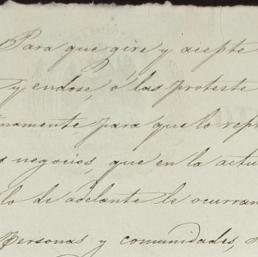 Para que gire y acepte
y endose, ó las proteste
namente para que lo repr
s negocios, que en la actu
lo de adelante le ocurran
Personas y comunidades,